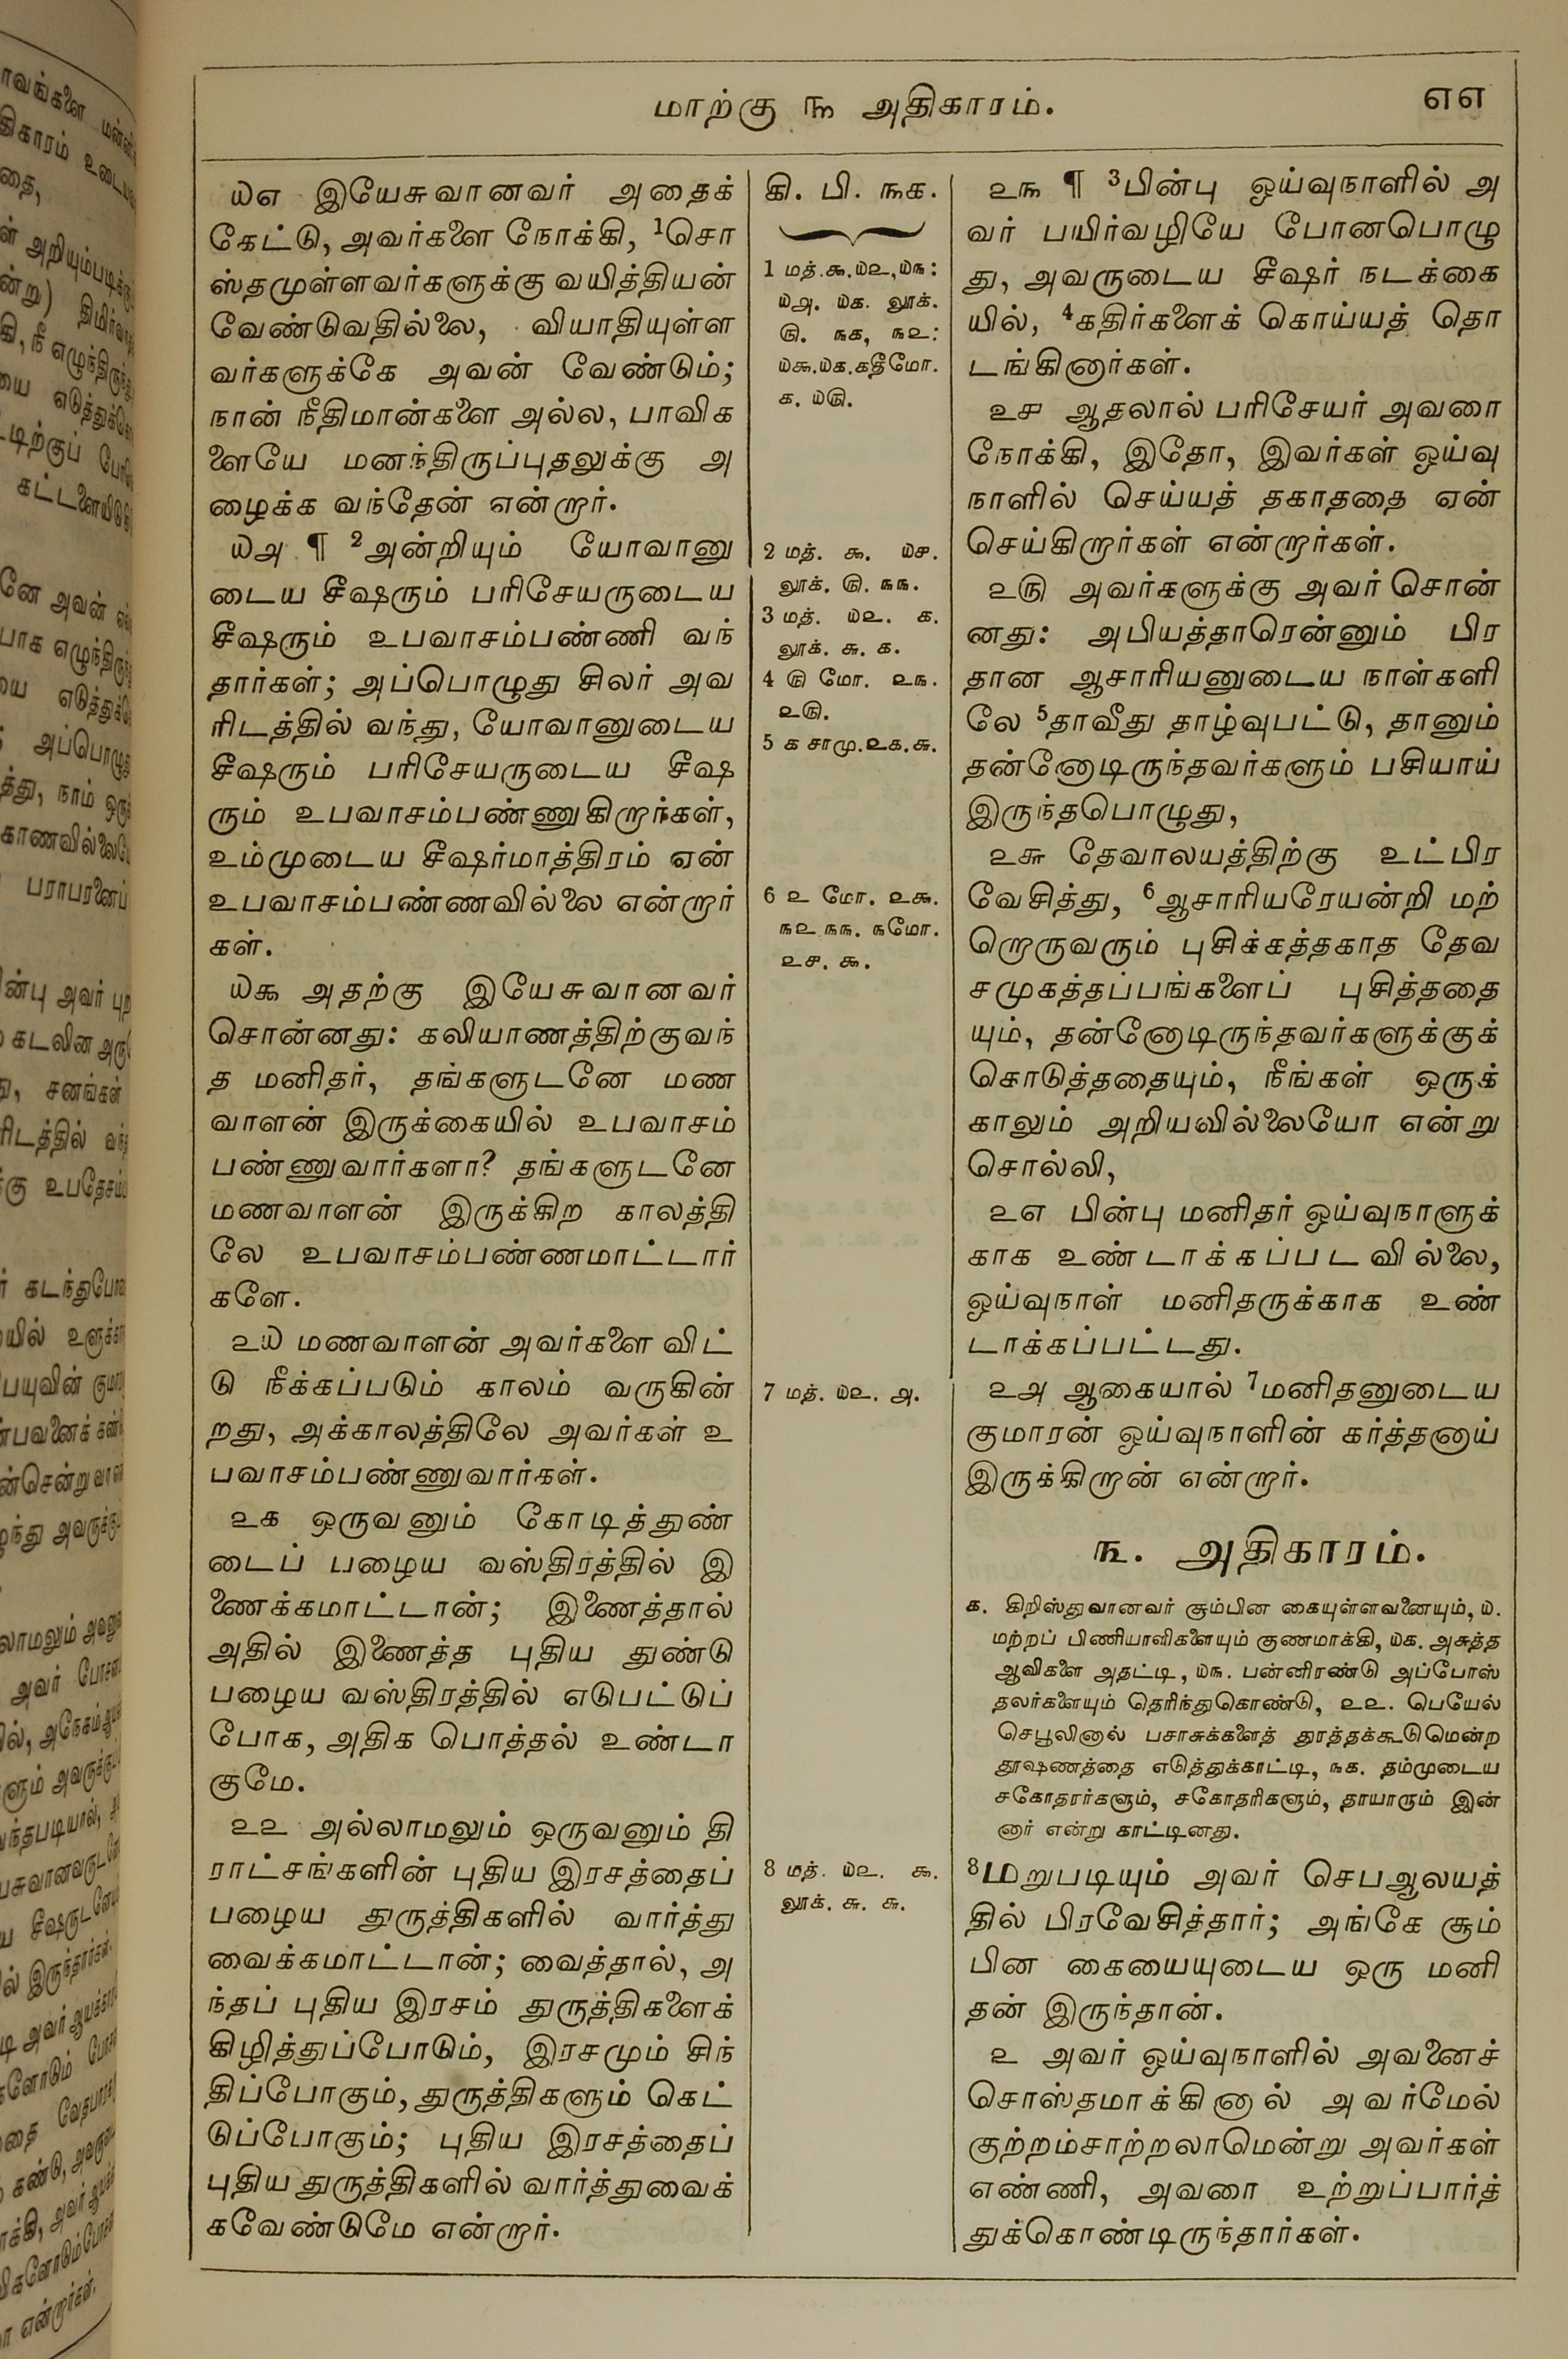 மாற்கு ௩ அதிகாரம்.
௭௭
௰௭ இயேசுவானவர் அதைக்
கேட்டு, அவர்களை நோக்கி, 1சொ
ஸ்தமுள்ளவர்களுக்கு வயித்தியன்
வேண்டுவதில்லை, வியாதியுள்ள
வர்களுக்கே அவன் வேண்டும்;
நான் நீதிமான்களை அல்ல, பாவிக
ளையே மனந்திருப்புதலுக்கு அ
ழைக்க வந்தேன் என்றார்.
௰௮ ¶ 2அன்றியும் யோவானு
டைய சீஷரும் பரிசேயருடைய
சீஷரும் உபவாசம்பண்ணி வந்
தார்கள்; அப்பொழுது சிலர் அவ
ரிடத்தில் வந்து, யோவானுடைய
சீஷரும் பரிசேயருடைய சீஷ
ரும் உபவாசம்பண்ணுகிறார்கள்,
உம்முடைய சீஷர்மாத்திரம் ஏன்
உபவாசம்பண்ணவில்லை என்றார்
கள்.
௰௯ அதற்கு இயேசுவானவர்
சொன்னது: கலியாணத்திற்குவந்
த மனிதர், தங்களுடனே மண
வாளன் இருக்கையில் உபவாசம்
பண்ணுவார்களா? தங்களுடனே
மணவாளன் இருக்கிற காலத்தி
லே உபவாசம்பண்ணமாட்டார்
களே.
௨௰ மணவாளன் அவர்களை விட்
டு நீக்கப்படும் காலம் வருகின்
றது, அக்காலத்திலே அவர்கள் உ
பவாசம்பண்ணுவார்கள்.
௨௧ ஒருவனும் கோடித்துண்
டைப் பழைய வஸ்திரத்தில் இ
ணைக்கமாட்டான்; இணைத்தால்
அதில் இணைத்த புதிய துண்டு
பழைய வஸ்திரத்தில் எடுபட்டுப்
போக, அதிக பொத்தல் உண்டா
குமே.
௨௨ அல்லாமலும் ஒருவனும் தி
ராட்சங்களின் புதிய இரசத்தைப்
பழைய துருத்திகளில் வார்த்து
வைக்கமாட்டான்; வைத்தால், அ
ந்தப் புதிய இரசம் துருத்திகளைக்
கிழித்துப்போடும், இரசமும் சிந்
திப்போகும், துருத்திகளும் கெட்
டுப்போகும்; புதிய இரசத்தைப்
புதிய துருத்திகளில் வார்த்துவைக்
கவேண்டுமே என்றார்.
கி. பி. ௩௧.
1 மத்.௯.௰௨,௰௩:
௰௮. ௰௧. லூக்.
௫. ௩௧, ௩௨:
௰௯.௰௧.௧தீமோ.
௧. ௰௫.
2 மத். ௯. ௰௪.
லூக். ௫. ௩௩.
3 மத். ௰௨. ௧.
லூக். ௬. ௧.
4 ௫ மோ. ௨௩.
௨௫.
5 ௧ சாமு.௨௧.௬.
6 ௨ மோ. ௨௯.
௩௨ ௩௩. ௩மோ.
௨௪. ௯.
7 மத். ௰௨. ௮.
8 மத். ௰௨. ௯.
லூக். ௬. ௬.
௨௩ ¶ 3பின்பு ஓய்வுநாளில் அ
வர் பயிர்வழியே போனபொழு
து, அவருடைய சீஷர் நடக்கை
யில், 4கதிர்களைக் கொய்யத் தொ
டங்கினார்கள்.
௨௪ ஆதலால் பரிசேயர் அவரை
நோக்கி, இதோ, இவர்கள் ஓய்வு
நாளில் செய்யத் தகாததை ஏன்
செய்கிறார்கள் என்றார்கள்.
௨௫ அவர்களுக்கு அவர் சொன்
னது: அபியத்தாரென்னும் பிர
தான ஆசாரியனுடைய நாள்களி
லே 5தாவீது தாழ்வுபட்டு, தானும்
தன்னோடிருந்தவர்களும் பசியாய்
இருந்தபொழுது,
௨௬ தேவாலயத்திற்கு உட்பிர
வேசித்து, 6ஆசாரியரேயன்றி மற்
றொருவரும் புசிக்கத்தகாத தேவ
சமுகத்தப்பங்களைப் புசித்ததை
யும், தன்னோடிருந்தவர்களுக்குக்
கொடுத்ததையும், நீங்கள் ஒருக்
காலும் அறியவில்லையோ என்று
சொல்லி,
௨௭ பின்பு மனிதர் ஓய்வுநாளுக்
காக உண்டாக்கப்படவில்லை,
ஓய்வுநாள் மனிதருக்காக உண்
டாக்கப்பட்டது.
௨௮ ஆகையால் 7மனிதனுடைய
குமாரன் ஓய்வுநாளின் கர்த்தனாய்
இருக்கிறான் என்றார்.
௩. அதிகாரம்.
௧. கிறிஸ்துவானவர் சூம்பின கையுள்ளவனையும், ௰.
மற்றப் பிணியாளிகளையும் குணமாக்கி, ௰௧. அசுத்த
ஆவிகளை அதட்டி, ௰௩. பன்னிரண்டு அப்போஸ்
தலர்களையும் தெரிந்துகொண்டு, ௨௨. பெயேல்
செபூலினால் பசாசுக்களைத் துரத்தக்கூடுமென்ற
தூஷணத்தை எடுத்துக்காட்டி, ௩௧. தம்முடைய
சகோதரர்களும், சகோதரிகளும், தாயாரும் இன்
னார் என்று காட்டினது.
8மறுபடியும் அவர் செபஆலயத்
தில் பிரவேசித்தார்; அங்கே சூம்
பின கையையுடைய ஒரு மனி
தன் இருந்தான்.
௨ அவர் ஓய்வுநாளில் அவனைச்
சொஸ்தமாக்கினால் அவர்மேல்
குற்றம்சாற்றலாமென்று அவர்கள்
எண்ணி, அவரை உற்றுப்பார்த்
துக்கொண்டிருந்தார்கள்.